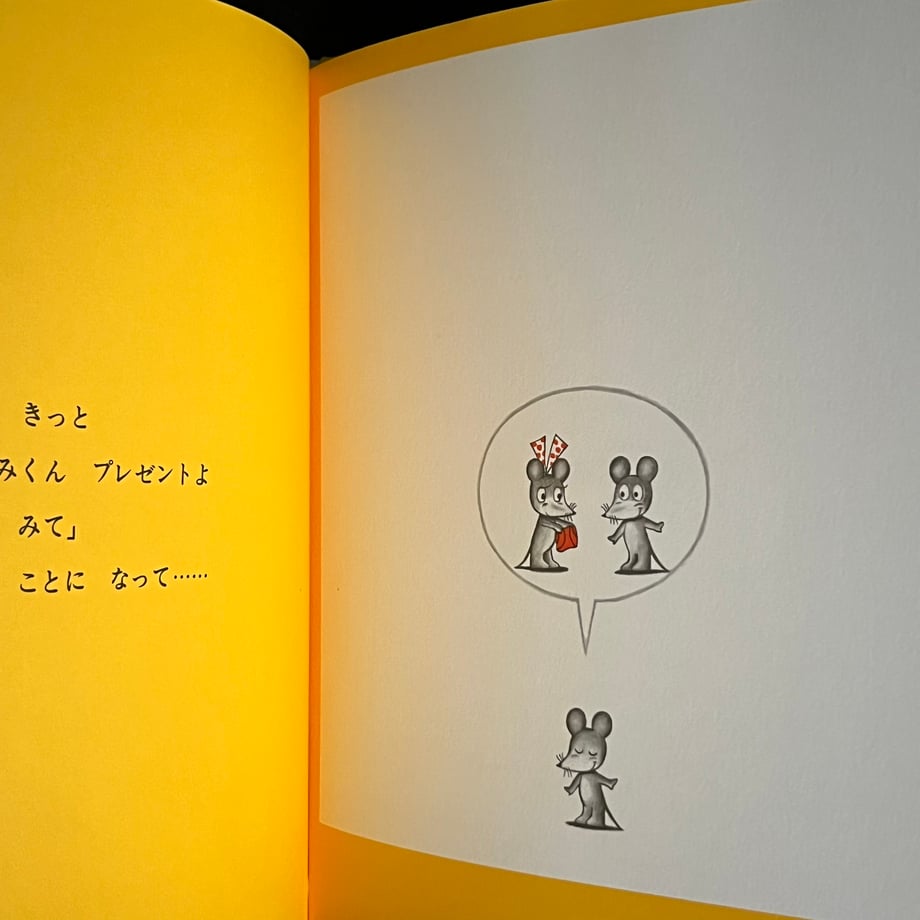 きっと
みくん　プレゼントよ
みて」
ことに　なって……